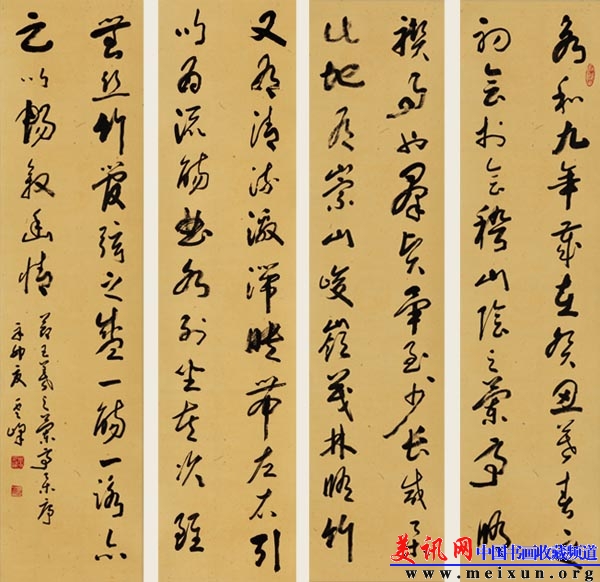 永和九年歲在癸丑暮春之
初會於會稽山陰之蘭亭脩
禊事也群賢畢至少長咸集
此地有崇山峻嶺茂林脩竹
又有清流激湍映帶左右引
以為流觴曲水列坐其次雖
無絲竹管弦之盛一觴一詠亦
足以暢敘幽情
節王羲之蘭亭集序
辛卯夏
美讯网 中国书画收藏频道
www.meixun.org